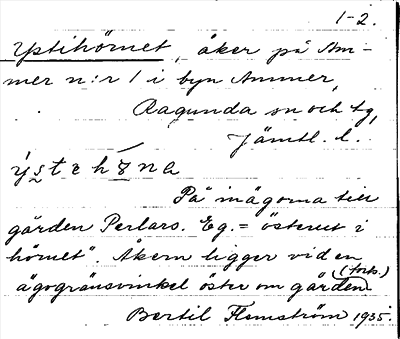 1-2.
Ystihörnet, åker på Am-
mer n:r 1 i byn Ammer,
Ragunda sn och tg,
Jämtl. l.
På inägorna till
gården Perlars. Eg. = "österut i
hörnet". Åkern ligger vid en
ägogränsvinkel öster om gården. (forts.)
Bertil Flemström 1935.